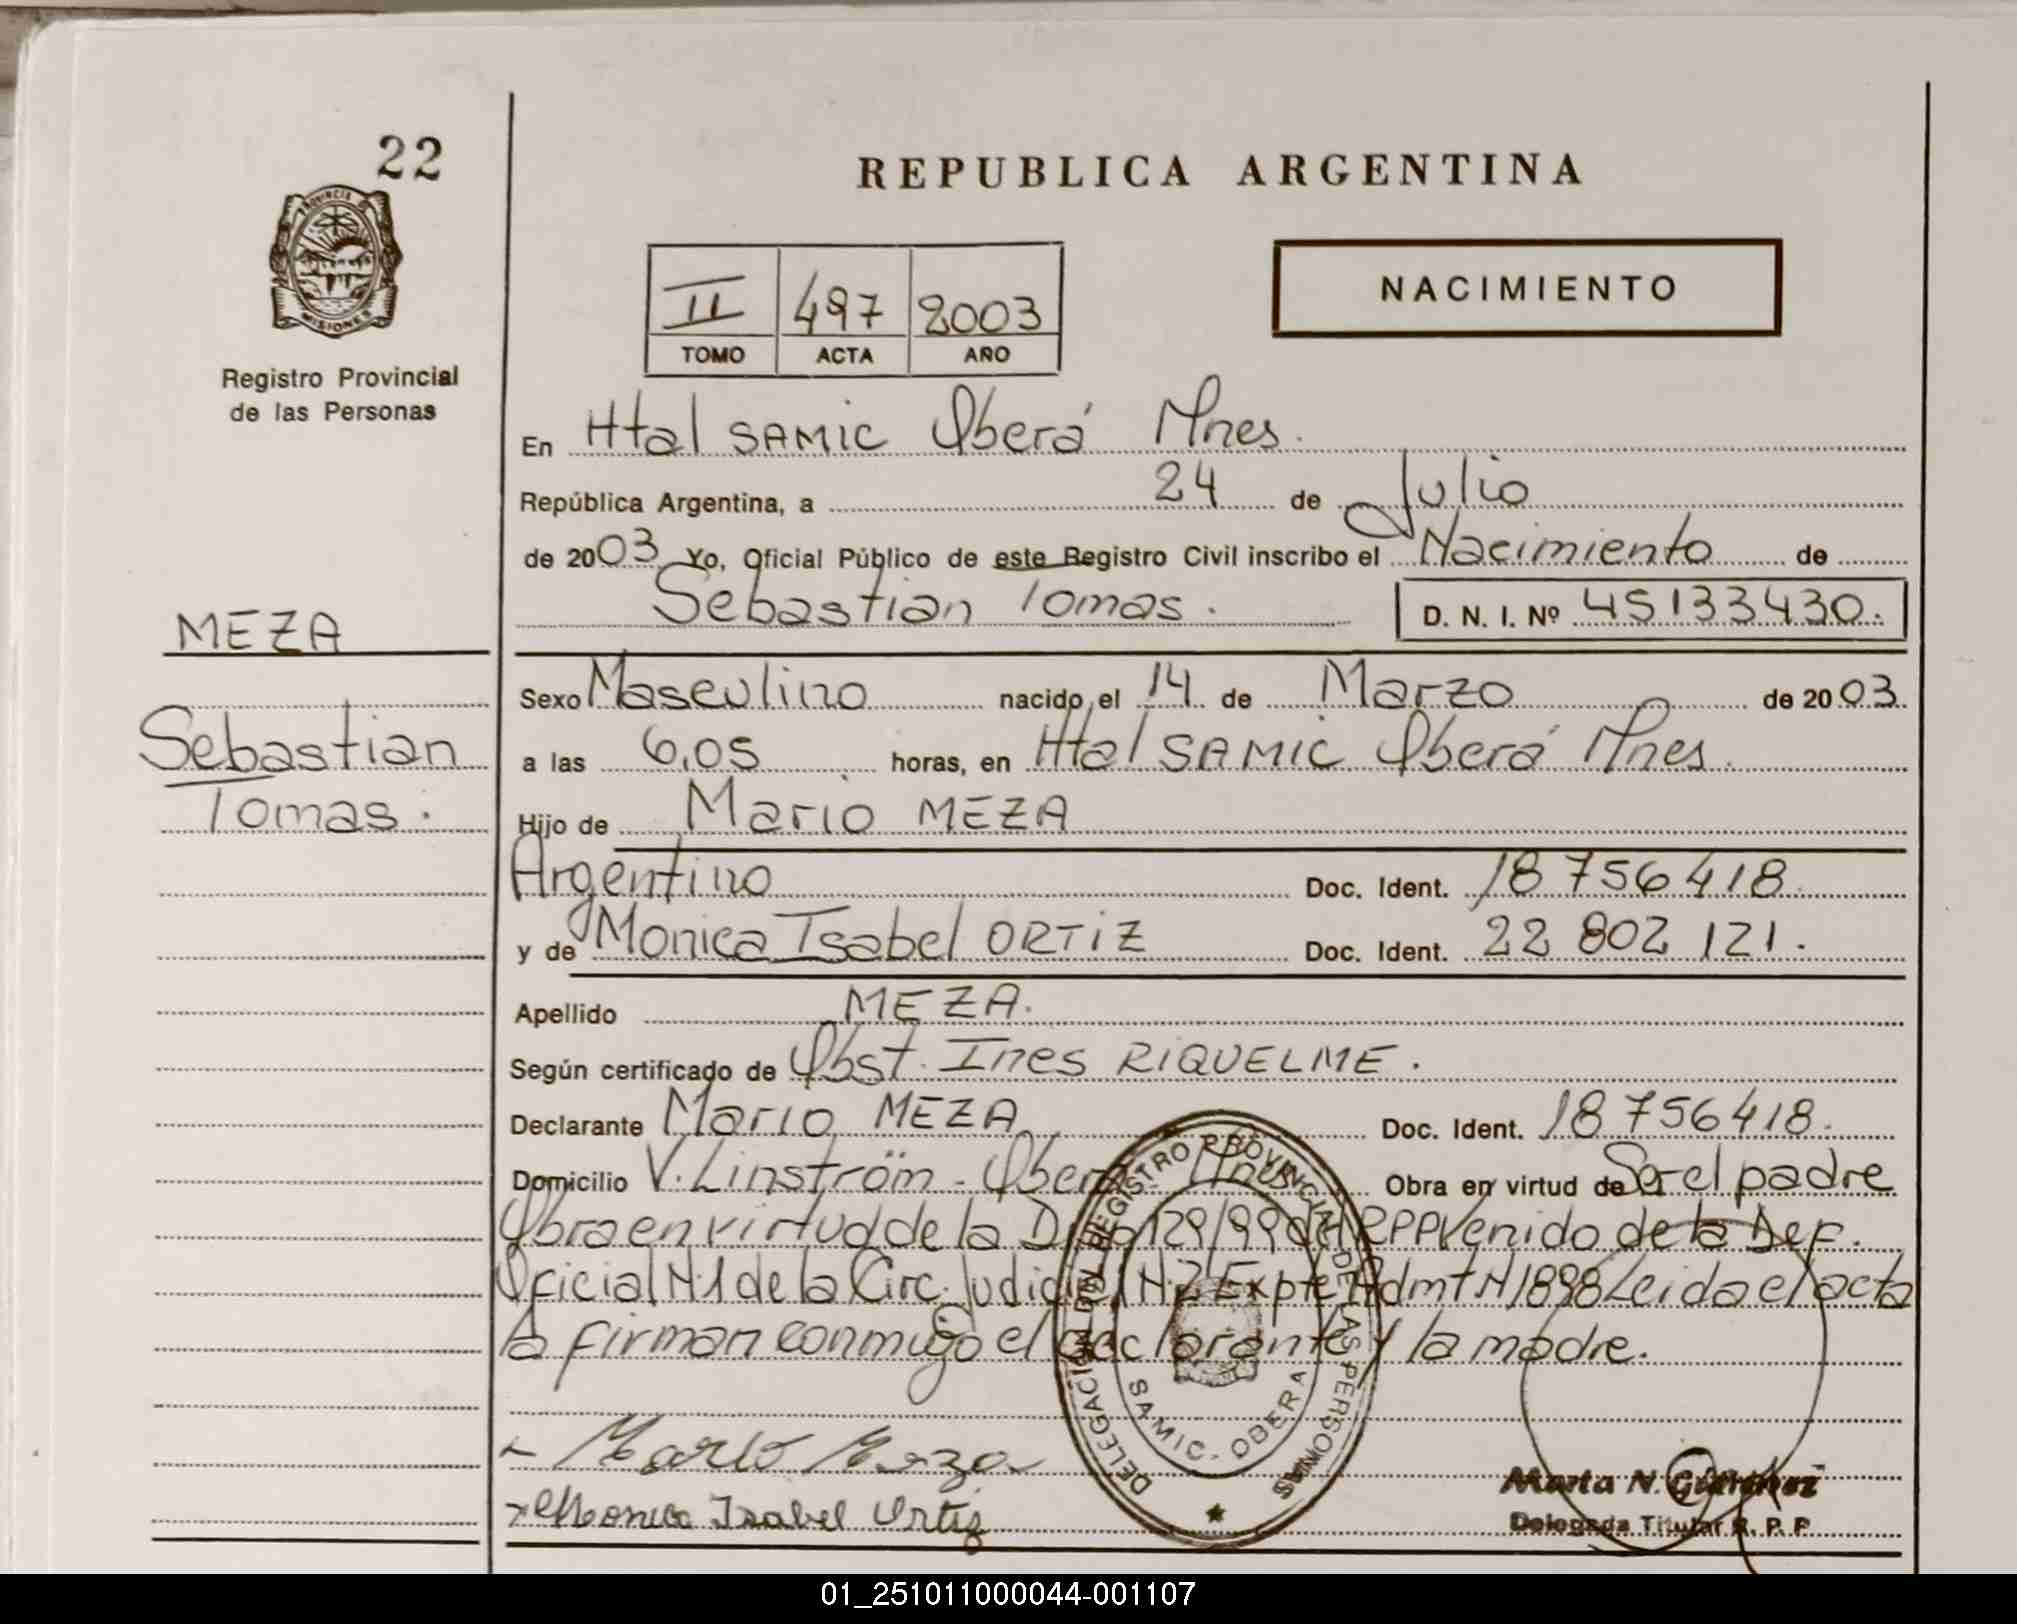 22
PROVINCIA DE
MISIONES
Registro Provincial
de las Personas
MEZA
Sebastian
Tomas.
REPUBLICA ARGENTINA
II 497 2003
TOMO ACTA AÑO
NACIMIENTO
En Htal SAMIC Oberá Mnes.
República Argentina, a 24 de Julio
de 2003 Yo, Oficial Público de este Registro Civil inscribo el Nacimiento de
Sebastian Tomas. D. N. I. Nº 45133430.
Sexo Masculino nacido el 14 de Marzo de 2003
a las 6,05 horas, en Htal SAMIC Oberá Mnes.
Hijo de Mario MEZA
Argentino Doc. Ident. 18 756 418
y de Monica Isabel ORTIZ Doc. Ident. 22 802 121.
Apellido MEZA.
Según certificado de Obst. Ines RIQUELME.
Declarante Mario MEZA Doc. Ident. 18 756 418.
Domicilio V. Linström - Oberá Mnes Obra en virtud de Ser el padre
Obra en virtud de la 129/99 del RPP Venido de la Def.
Oficial N.1 de la Circ. Judicial N.2 Expte Admt N 1898 Leida el acta
la firman conmigo el declarante y la madre.
Mario Meza
x Monica Isabel Ortiz
DELEGACION REGISTRO PROVINCIAL DE LAS PERSONAS
SAMIC - OBERA
Marta N.
Delegada Titular R. P. P
01_251011000044-001107